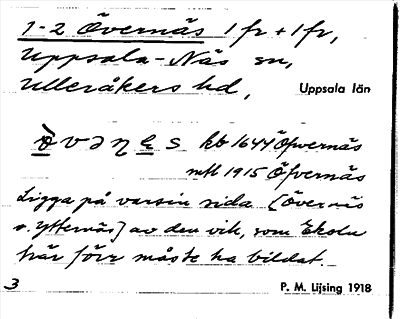 1-2 Övernäs 1 fr + 1 fr,
Uppsala-Näs sn,
Ulleråkers hd,
Uppsala län
kb 1644 Öfwernäs
mtl 1915 Öfvernäs
Ligga på varsin sida [Övernäs
o. Ytternäs] av den vik, som Ekoln
här förr måste ha bildat.
3
P. M. Lijsing 1918